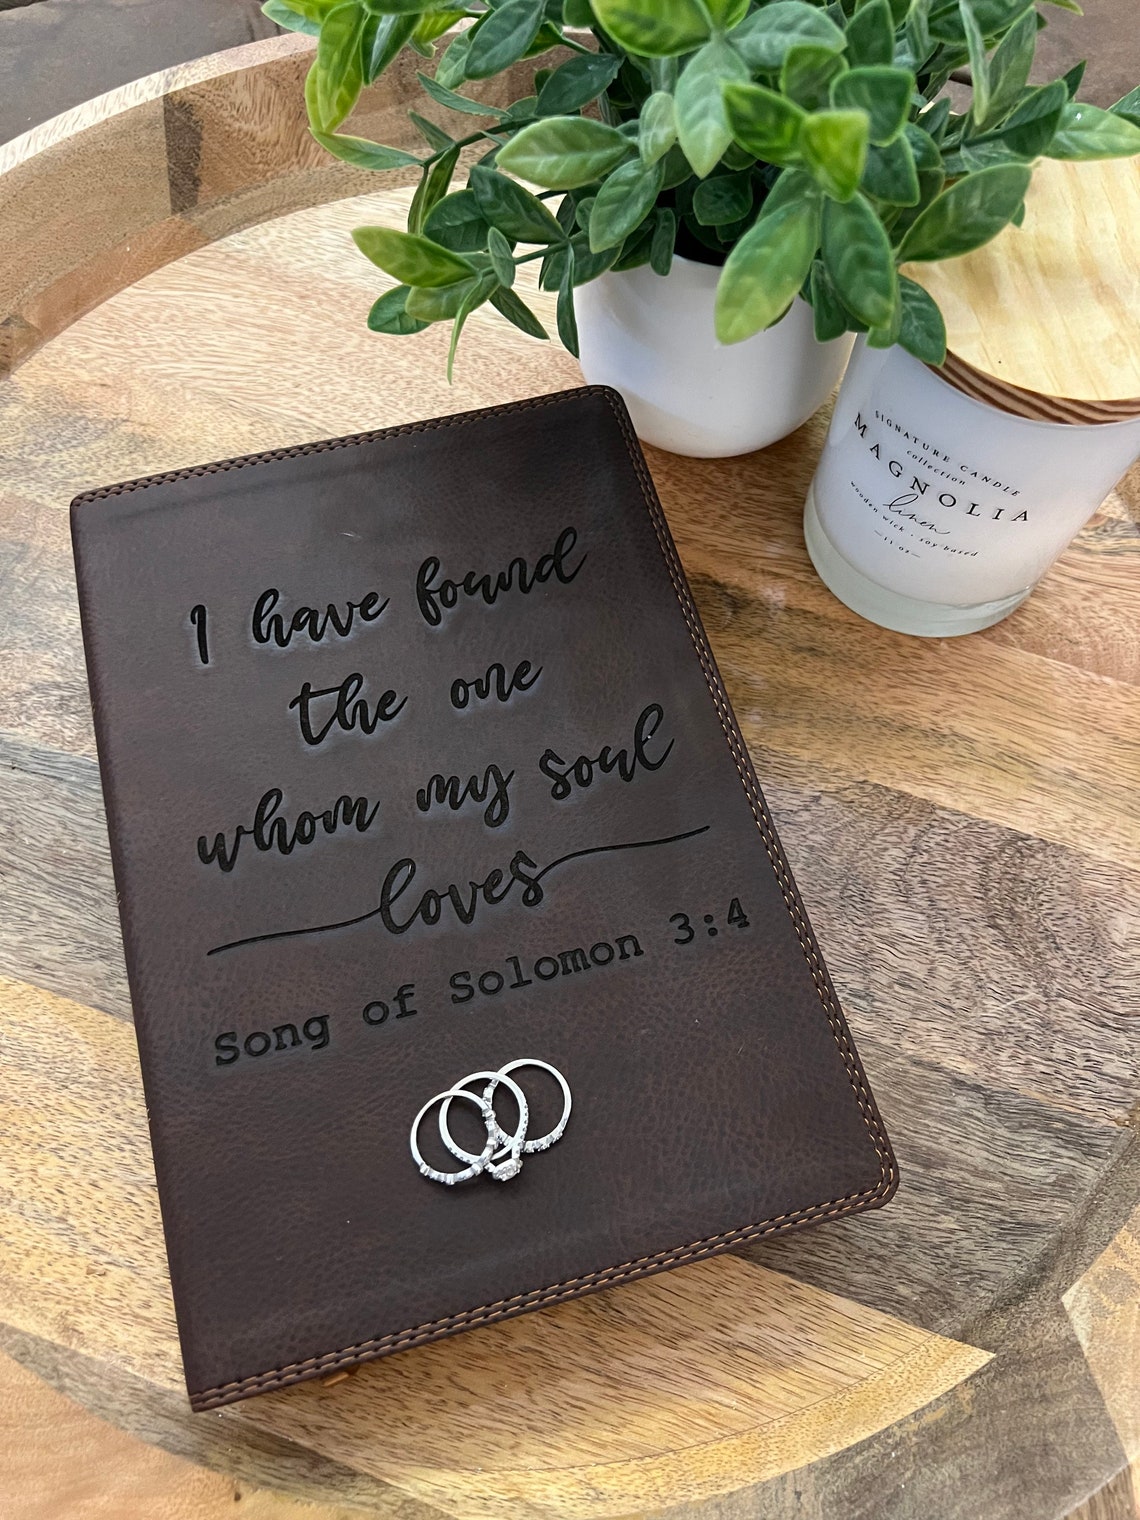 I have found
the one
whom my soul
loves
Song of Solomon 3:4
SIGNATURE CANDLE
collection
MAGNOLIA
linen
wooden wick • soy based
—11 oz—